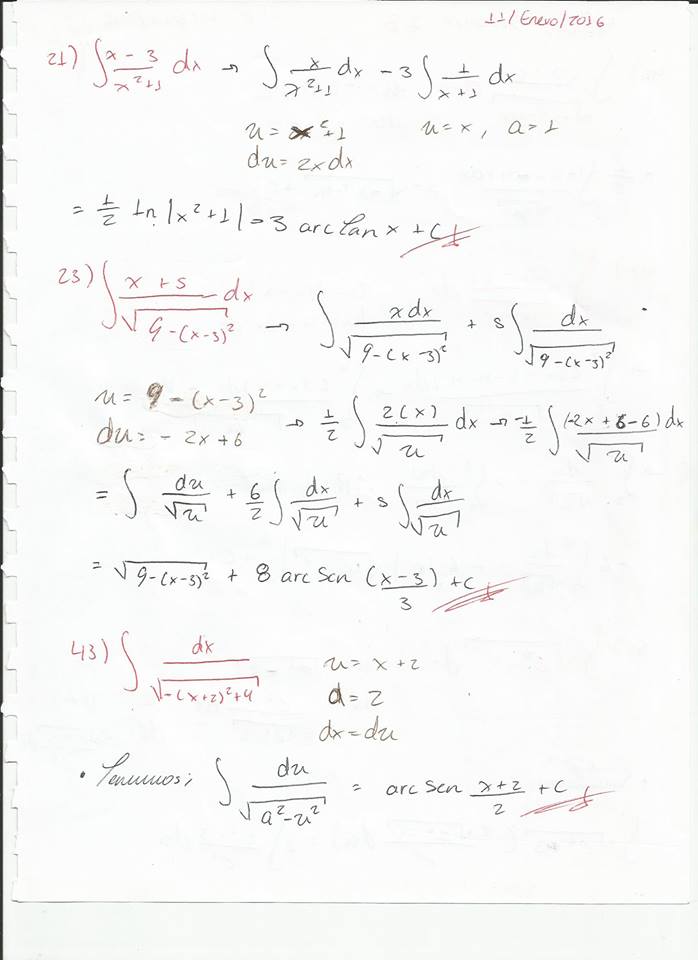 11/Enero/2016
21) ∫ x - 3 / x²+1 dx → ∫ x / x²+1 dx - 3 ∫ 1 / x+1 dx
u = x²+1 u = x, a = 1
du = 2x dx
= 1/2 Ln |x²+1| = 3 arctan x + C
23) ∫ x + 5 / √(9-(x-3)²) dx → ∫ x dx / √(9-(x-3)²) + 5 ∫ dx / √(9-(x-3)²)
u = 9 - (x-3)²
du = - 2x + 6 → 1/2 ∫ 2(x) / √u dx → -1/2 ∫ (-2x + 6 - 6) dx / √u
= ∫ du / √u + 6/2 ∫ dx / √u + 5 ∫ dx / √u
= √(9-(x-3)²) + 8 arcsen (x-3)/3 + C
43) ∫ dx / √(-(x+2)²+4) u = x + 2
a = 2
dx = du
• Tenemos; ∫ du / √(a²-u²) = arcsen x+2 / 2 + C